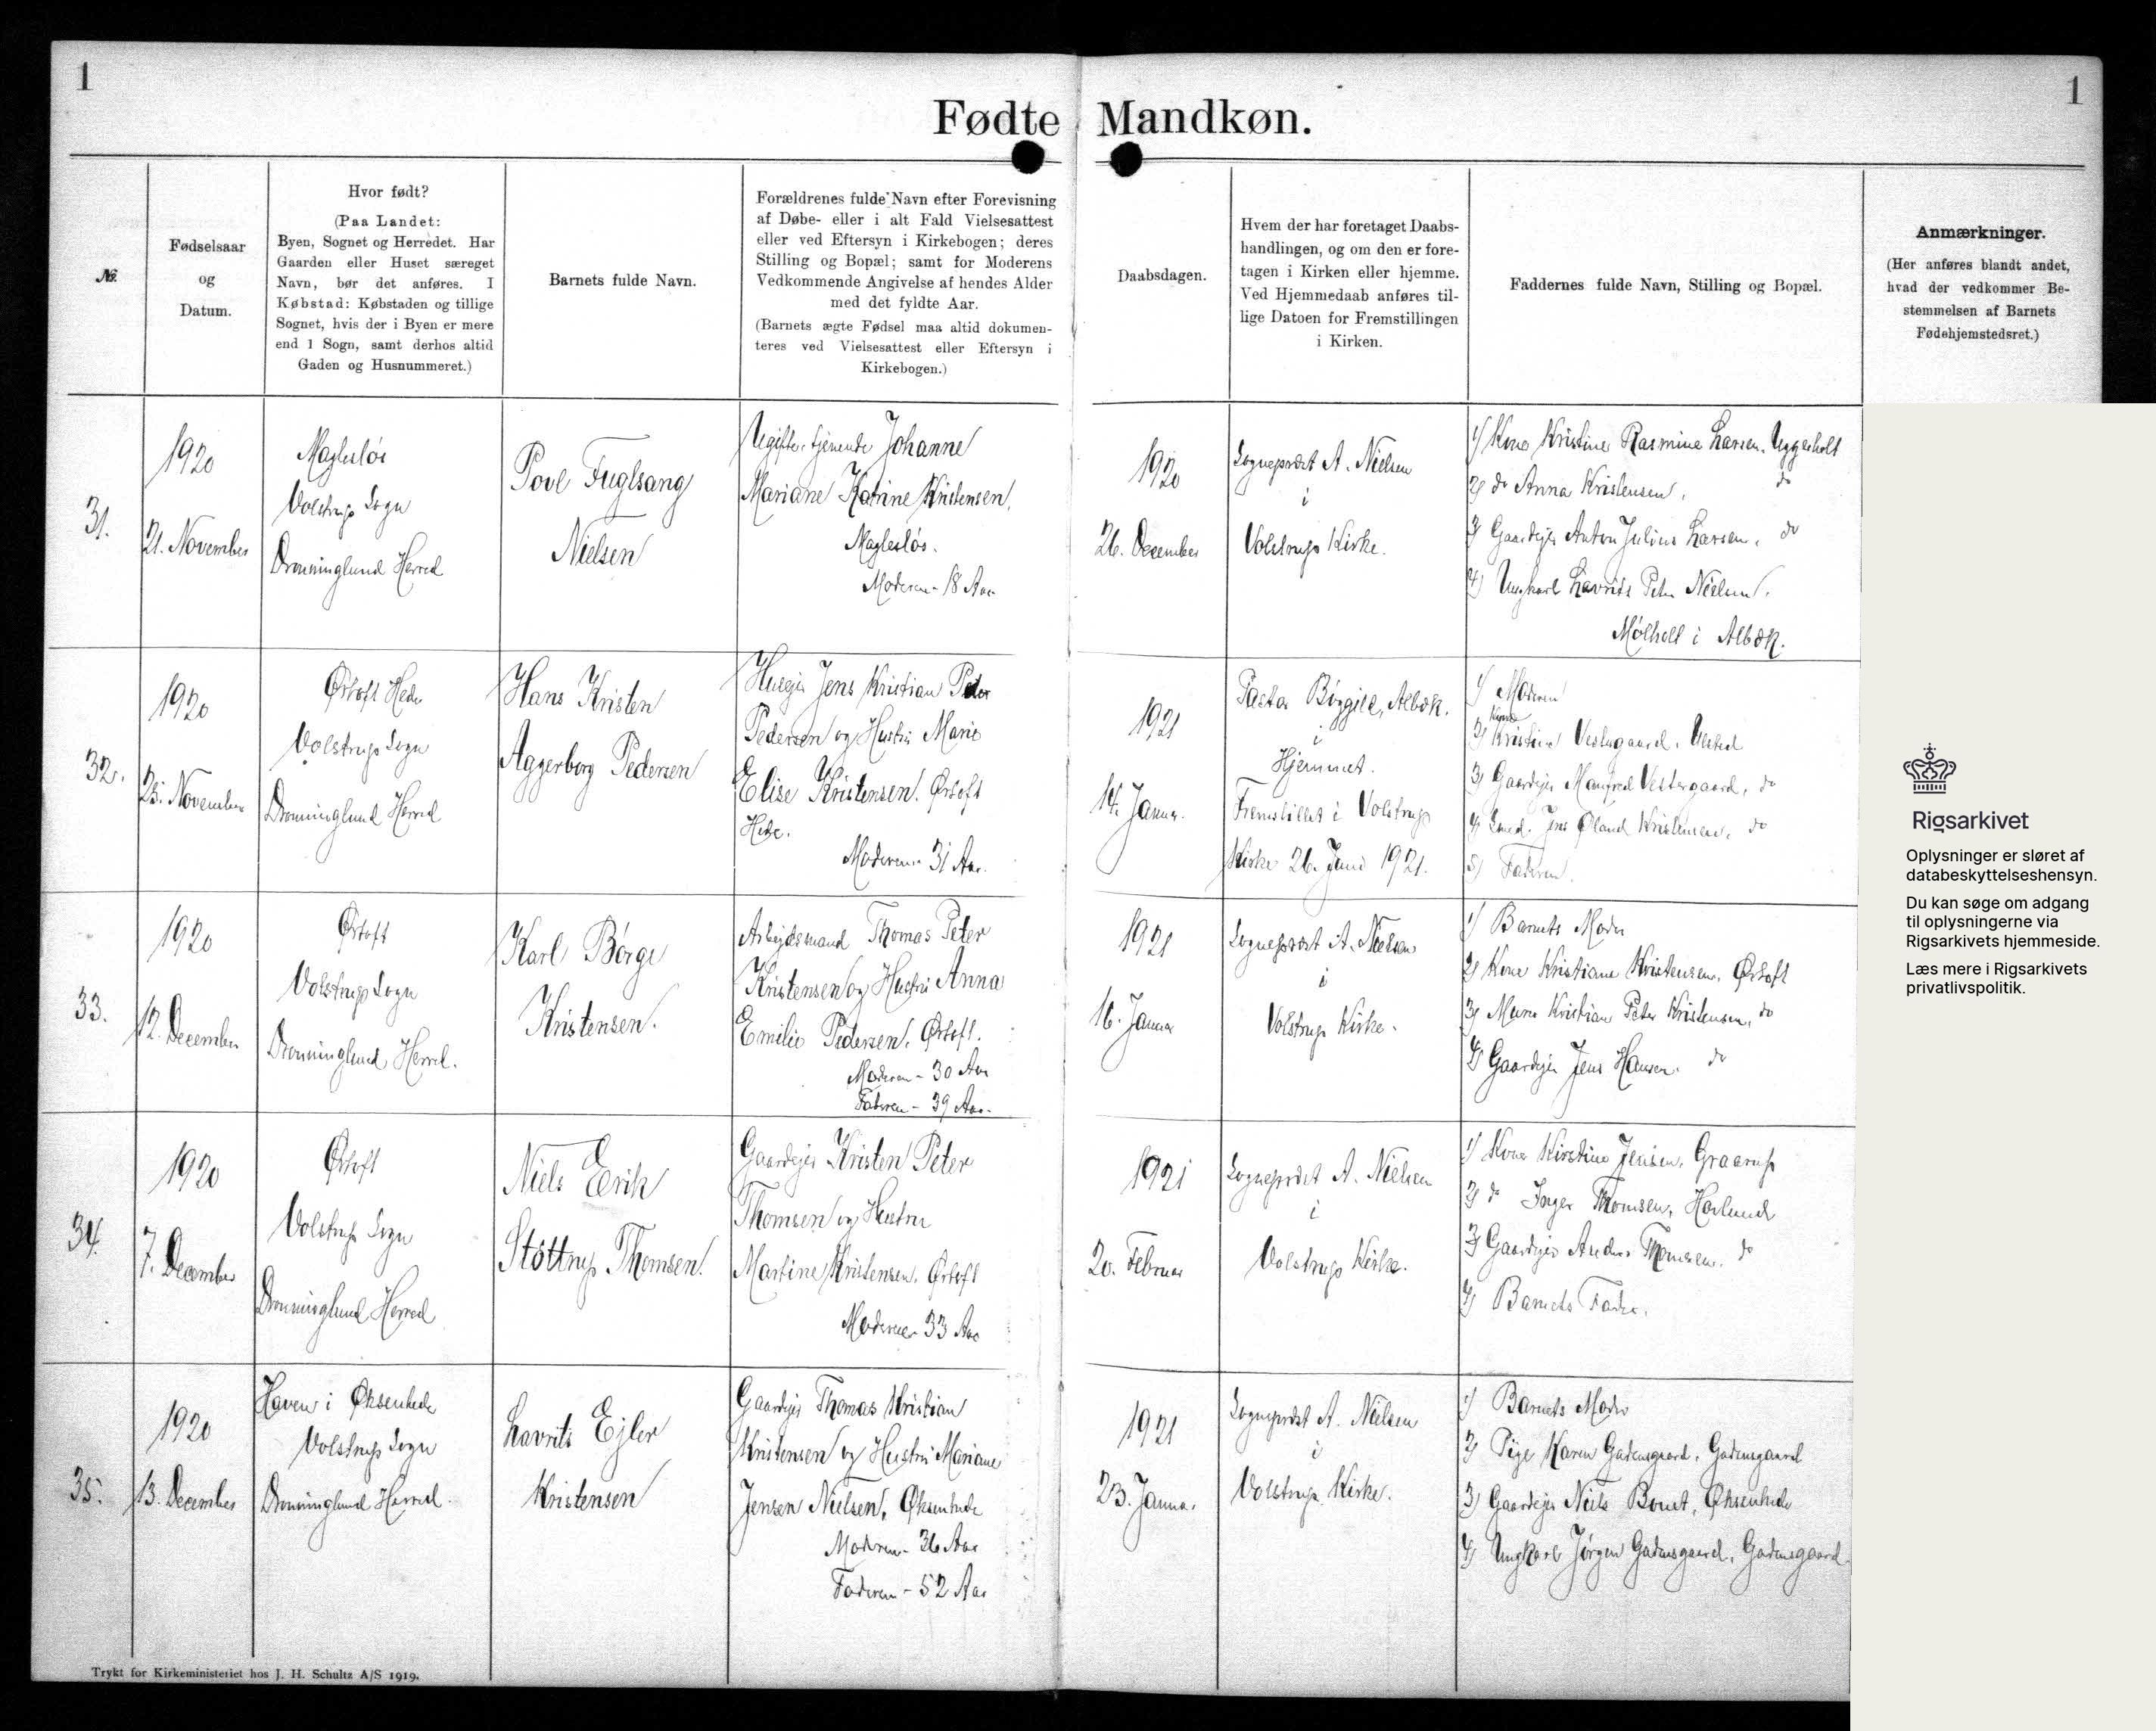 1
1
Fødte Mandkøn.
№
Fødselsaar
og
Datum.
Hvor født?
(Paa Landet:
Byen, Sognet og Herredet. Har
Gaarden eller Huset særeget
Navn, bør det anføres. I
Købstad: Købstaden og tillige
Sognet, hvis der i Byen er mere
end 1 Sogn, samt derhos altid
Gaden og Husnummeret.)
Barnets fulde Navn.
Forældrenes fulde Navn efter Forevisning
af Døbe- eller i alt Fald Vielsesattest
eller ved Eftersyn i Kirkebogen; deres
Stilling og Bopæl; samt for Moderens
Vedkommende Angivelse af hendes Alder
med det fyldte Aar.
(Barnets ægte Fødsel maa altid dokumen-
teres ved Vielsesattest eller Eftersyn i
Kirkebogen.)
Daabsdagen.
Hvem der har foretaget Daabs-
handlingen, og om den er fore-
tagen i Kirken eller hjemme.
Ved Hjemmedaab anføres til-
lige Datoen for Fremstillingen
i Kirken.
Faddernes fulde Navn, Stilling og Bopæl.
Anmærkninger.
(Her anføres blandt andet,
hvad der vedkommer Be-
stemmelsen af Barnets
Fødehjemstedsret.)
31.
1920
21. November
Magleslös
Volstrup Sogn
Dronninglund Herred
Povl Fuglsang
Nielsen
Ugifte, tjenende Johanne
Mariane Katrine Kristensen,
Magleslös.
Moderen - 18 Aar
1920
26. December
Sognepræst A. Nielsen
i
Volstrup Kirke.
1) Kone Kristine Rasmine Larsen, Uggerholt
2) do Anna Kristensen, do
3) Gaardejer Anton Julius Larsen, do
4) Ungkarl Lavrits Peter Nielsen,
Mølholt i Albæk.
32.
1920
25. November
Ørtoft Hede
Volstrup Sogn
Dronninglund Herred
Hans Kristen
Aggerborg Pedersen
Husejer Jens Kristian Peder
Pedersen og Hustru Marie
Elise Kristensen, Ørtoft
Hede.
Moderen - 31 Aar.
1921
14. Januar.
Pastor Böggild, Albæk.
i
Hjemmet.
Fremstillet i Volstrup
Kirke 26. Juni 1921.
1) Moderen
2) Kone Kristine Vestergaard, Ulsted
3) Gaardejer Manfred Vestergaard, do
4) Smed. Jens Øland Kristensen, do
5) Faderen.
33.
1920
12. December
Ørtoft
Volstrup Sogn
Dronninglund Herred.
Karl Börge
Kristensen.
Arbejdsmand Thomas Peter
Kristensen og Hustru Anna
Emilie Pedersen, Ørtoft.
Moderen - 30 Aar
Faderen - 39 Aar.
1921
16. Januar
Sognepræst A. Nielsen
i
Volstrup Kirke.
1) Barnets Moder
2) Kone Kristiane Kristensen, Ørtoft
3) Murer Kristian Peter Kristensen, do
4) Gaardejer Jens Hansen. do
34.
1920
7. December
Ørtoft
Volstrup Sogn
Dronninglund Herred
Niels Eerik
Stöttrup Thomsen.
Gaardejer Kristen Peter
Thomsen og Hustru
Martine Kristensen, Ørtoft
Moderen - 33 Aar
1921
20. Februar
Sognepræst A. Nielsen
i
Volstrup Kirke.
1) Kone Kirstine Jensen, Graarup
2) do Inger Thomsen, Hørlund
3) Gaardejer Anders Thomsen. do
4) Barnets Fader.
35.
1920
13. December
Haven i Øksenhede
Volstrup Sogn
Dronninglund Herred.
Lavrits Ejler
Kristensen
Gaardejer Thomas Kristian
Kristensen og Hustru Mariane
Jensen Nielsen, Øksenhede
Moderen - 36 Aar
Faderen - 52 Aar
1921
23. Januar.
Sognepræst A. Nielsen
i
Volstrup Kirke.
1) Barnets Moder
2) Pige Karen Gadensgaard, Gadensgaard
3) Gaardejer Niels Bondt, Øksenhede
4) Ungkarl Jørgen Gadensgaard, Gadensgaard
Trykt for Kirkeministeriet hos J. H. Schultz A/S 1919.
Rigsarkivet
Oplysninger er sløret af
databeskyttelseshensyn.
Du kan søge om adgang
til oplysningerne via
Rigsarkivets hjemmeside.
Læs mere i Rigsarkivets
privatlivspolitik.